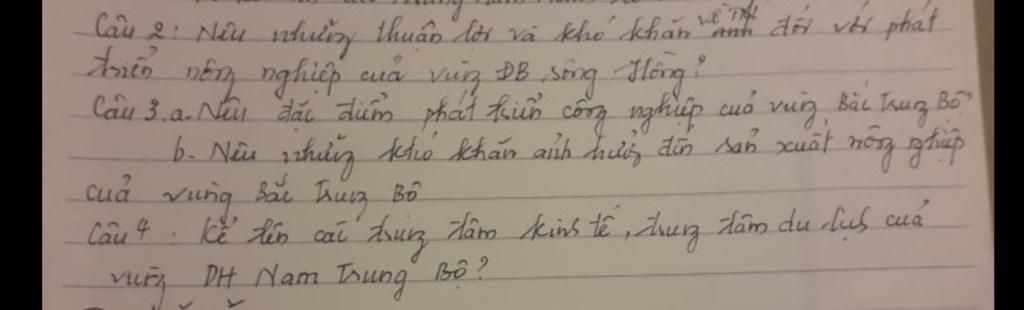 Câu 2: Nêu những thuận lợi và khó khăn về mt đối với phát
triển nông nghiệp của vùng ĐB sông Hồng?
Câu 3. a. Nêu đặc điểm phát triển công nghiệp của vùng Bắc Trung Bộ?
b. Nêu những khó khăn ảnh hưởng đến sản xuất nông nghiệp
của vùng Bắc Trung Bộ
Câu 4: Kể tên các trung tâm kinh tế, trung tâm du lịch của
vùng DH Nam Trung Bộ?